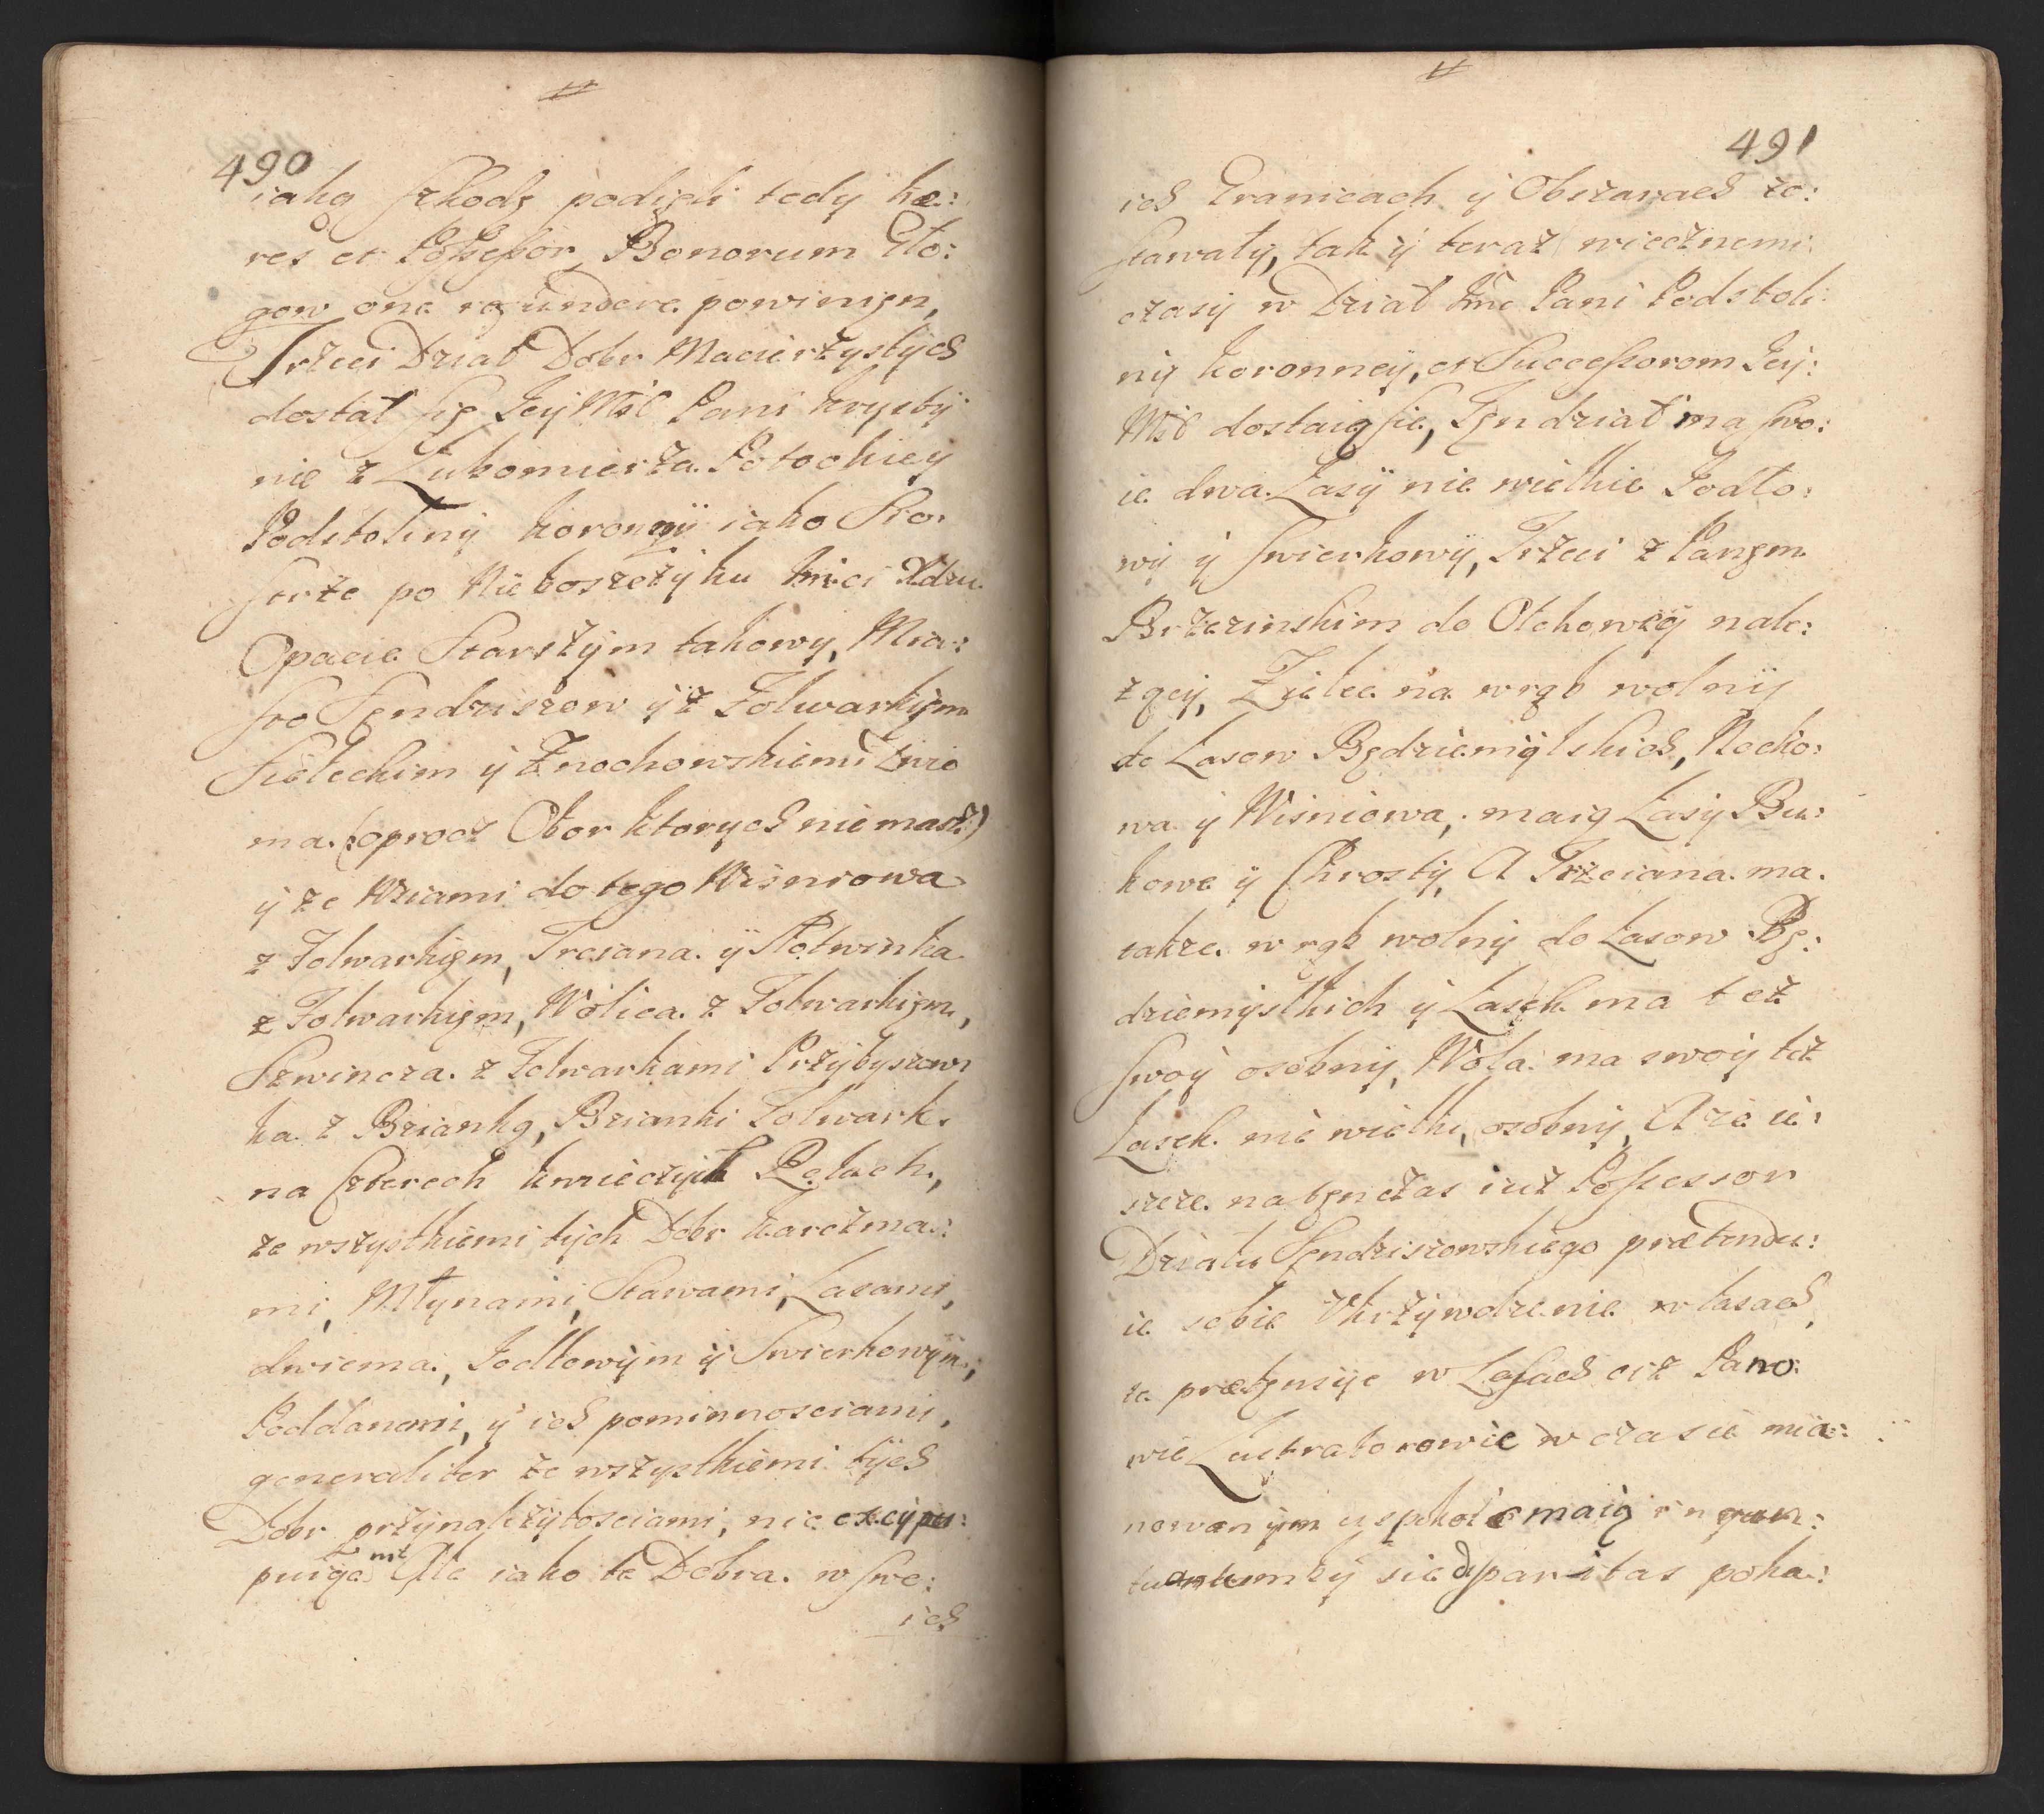 490
iaką szkodę podięli tedy hæ:
res et Possessor Bonorum Gło:
gow one refundere powinięn,
Trzeci Dział Dobr Macierzystych
dostał się Jey Mśc Pani Krysty
nie z Lubomierza Potockiey
Podstoliny koronny iako Sio:
strze po Nieboszczyku Jmci Xdzu
Opacie Starszym takowy, Mia:
sto Sęndziszow y z Folwarkiem
Kieleckim y Znochowskiemi Zwie
ma (oprocz Obor ktorych niemasz)
y ze Wsiami do tego Wisniowa
z Folwarkięm, Trciana y Płotwinka
z Folwarkięm, Wolica z Folwarkięm,
Szwincza z Folwarkami Przybyszow
ka z Brzianką, Brzianki Folwark
na Czterech kmieczych Rolach,
ze wszystkiemi tych Dobr karczma:
mi, Młynami, Stawami, Lasami,
dwiema, Jodłowym y Swierkowym,
Poddanemi, y ich powinnosciami,
generaliter ze wszystkiemi tych
Dobr przynależytosciami, nic excypu:
puiąc Ale iako te Dobra w swo:
ich
491
ich Granicach y Obszarach zo:
stawały, tak y teraz wiecznemi
czasy w Dział Jme Pani Podstoli:
ny koronney, et Successorom Jey:
Mśc dostaią sie, Tęn dział ma swo:
ie dwa Lasy nie wielkie Jodło:
wy y swierkowy, Trzeci z Panęm
Brzezinskim do Olchowey nale:
zący, Zielec na wrąb wolny
do Lasow Będziemyslskich, Nocko:
wa y Wisniowa, maią Lasy Bu:
kowe y Chrosty, A Trzciana ma
takze wrąb wolny do Lasow Bę:
dziemyslkich y Lasęk ma tez
swoy osobny, Wola ma swoy też
Lasek nie wielki, osobny, A że ie:
szcze na tęnczas iuż Possessor
Działu Sęndziszowskiego prætendu:
ie sobie Ukrzywdzenie w lasach,
te prætęnsye w Lasach ciż Pano:
wie Lustratorowie w czasie mia:
nowanym uspokoić maią in quan:
tum by sie disparitas poka: